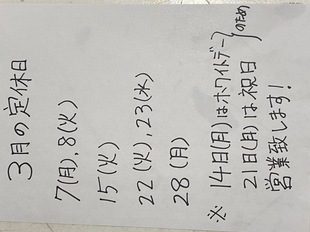 3月の定休日
7(月),8(火)
15(火)
22(火),23(水)
28(月)
※14日(月)はホワイトデー
21日(月)は祝日
のため
営業致します!